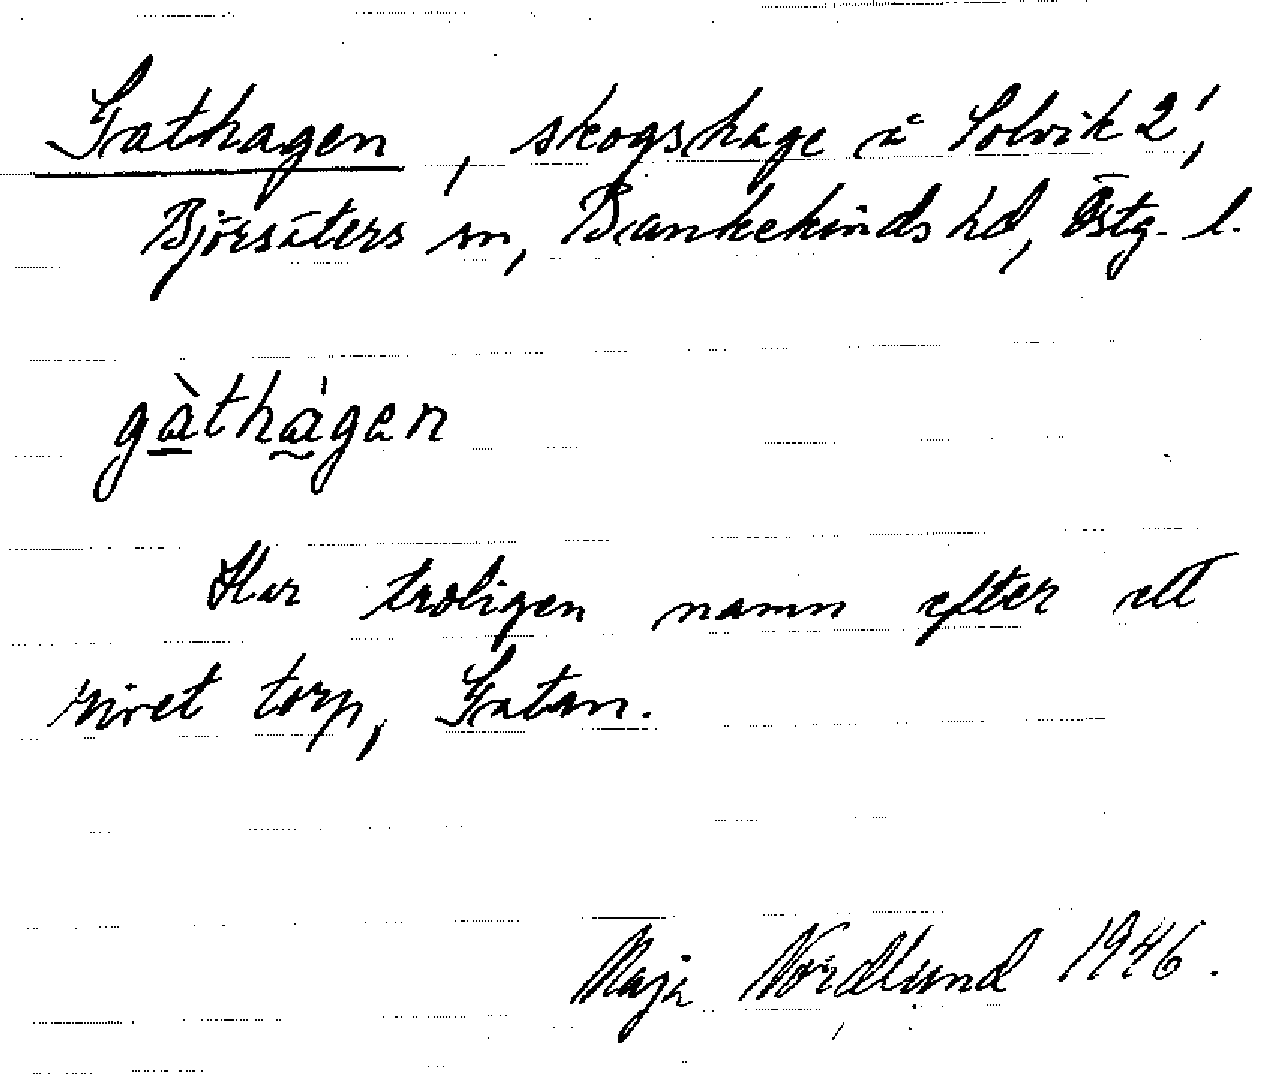 Gathagen, skogshage å Solvik 2',
Björsäters sn, Bankekinds hd, Östg. l.
gàthàgen
Har troligen namn efter ett
rivet torp, Gatan.
Maja Nordlund 1946.